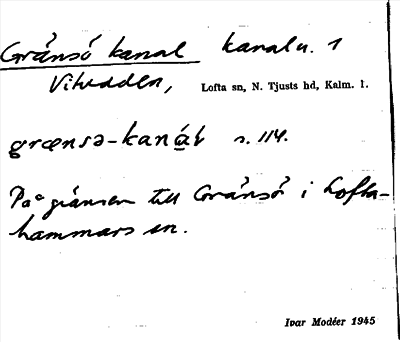 Gränsö kanal kanalu. 1
Vitudden, Lofta sn, N. Tjusts hd, Kalm. l.
grænsə-kanál s. 114.
På gränsen till Gränsö i Lofta-
hammars sn.
Ivar Modéer 1945